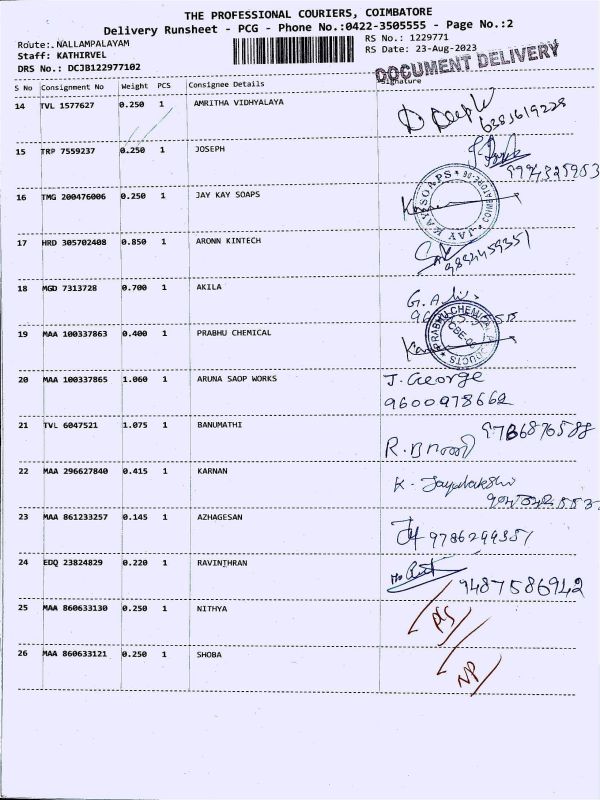 THE PROFESSIONAL COURIERS, COIMBATORE
Delivery Runsheet - PCG - Phone No.:0422-3505555 - Page No.:2
Route: NALLAMPALAYAM
RS No.: 1229771
Staff: KATHIRVEL
RS Date: 23-Aug-2023
DRS No.: DCJB122977102
DOCUMENT DELIVERY
S No Consignment No Weight PCS Consignee Details Signature
14 TVL 1577627 0.250 1 AMRITHA VIDHYALAYA
15 TRP 7559237 0.250 1 JOSEPH
16 TMG 200476006 0.250 1 JAY KAY SOAPS
JAY KAY SOAPS
17 HRD 305702408 0.850 1 ARONN KINTECH
18 MGD 7313728 0.700 1 AKILA
19 MAA 100337863 0.400 1 PRABHU CHEMICAL
20 MAA 100337865 1.060 1 ARUNA SAOP WORKS J. George
9600978662
21 TVL 6047521 1.075 1 BANUMATHI
22 MAA 296627840 0.415 1 KARNAN
23 MAA 861233257 0.145 1 AZHAGESAN 9786299351
24 EDQ 23824829 0.220 1 RAVINTHRAN 9487586942
25 MAA 860633130 0.250 1 NITHYA
26 MAA 860633121 0.250 1 SHOBA NP